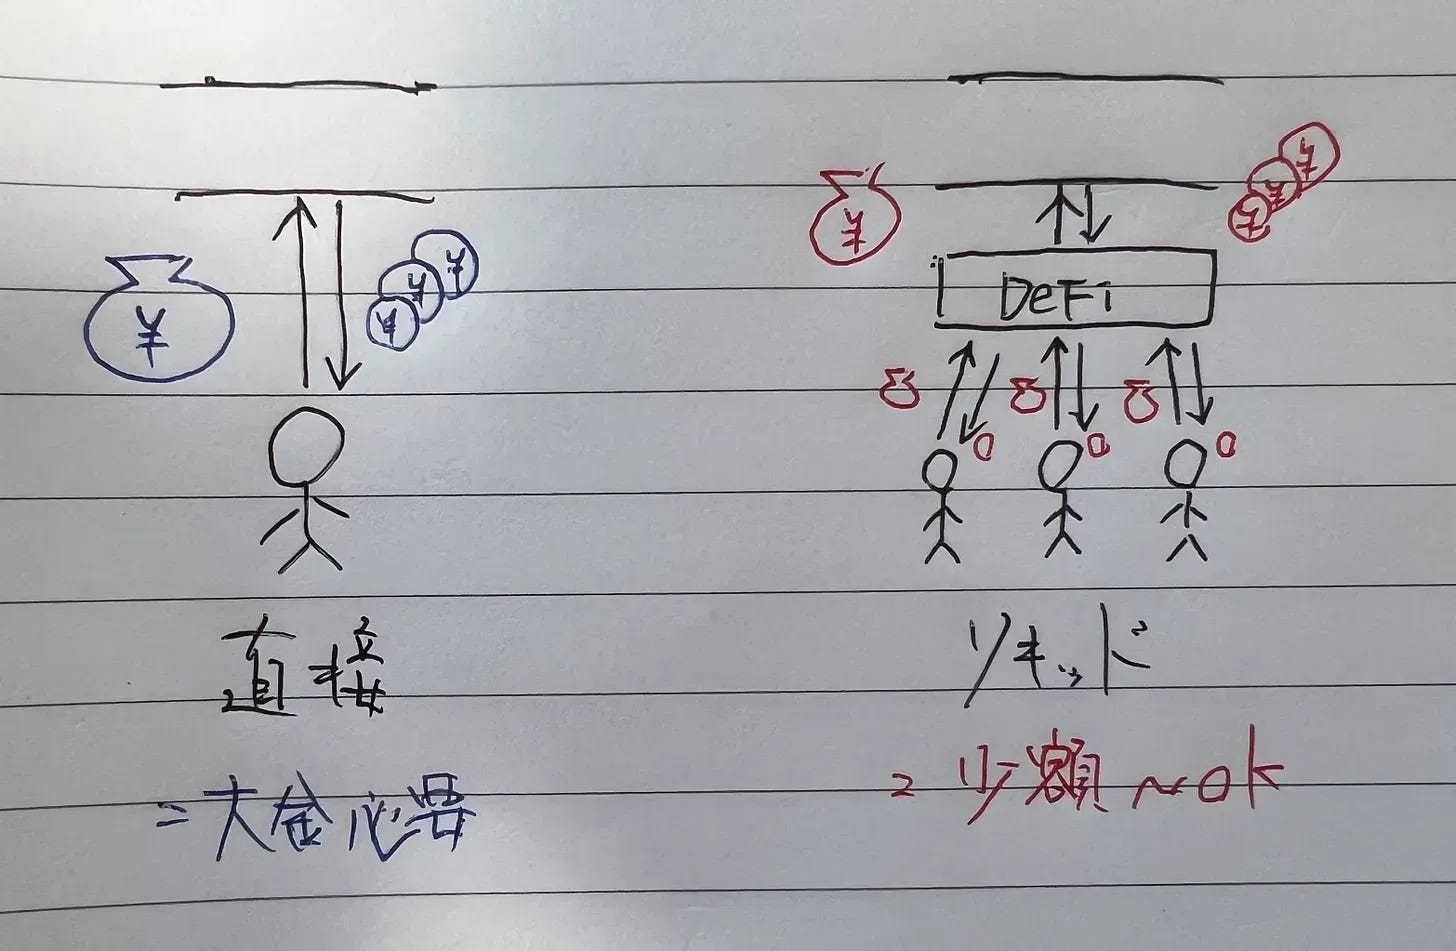 ¥
¥
¥
¥
¥
¥
¥
¥
DeFi
直接
=大金必要
リキッド
=少額~ok